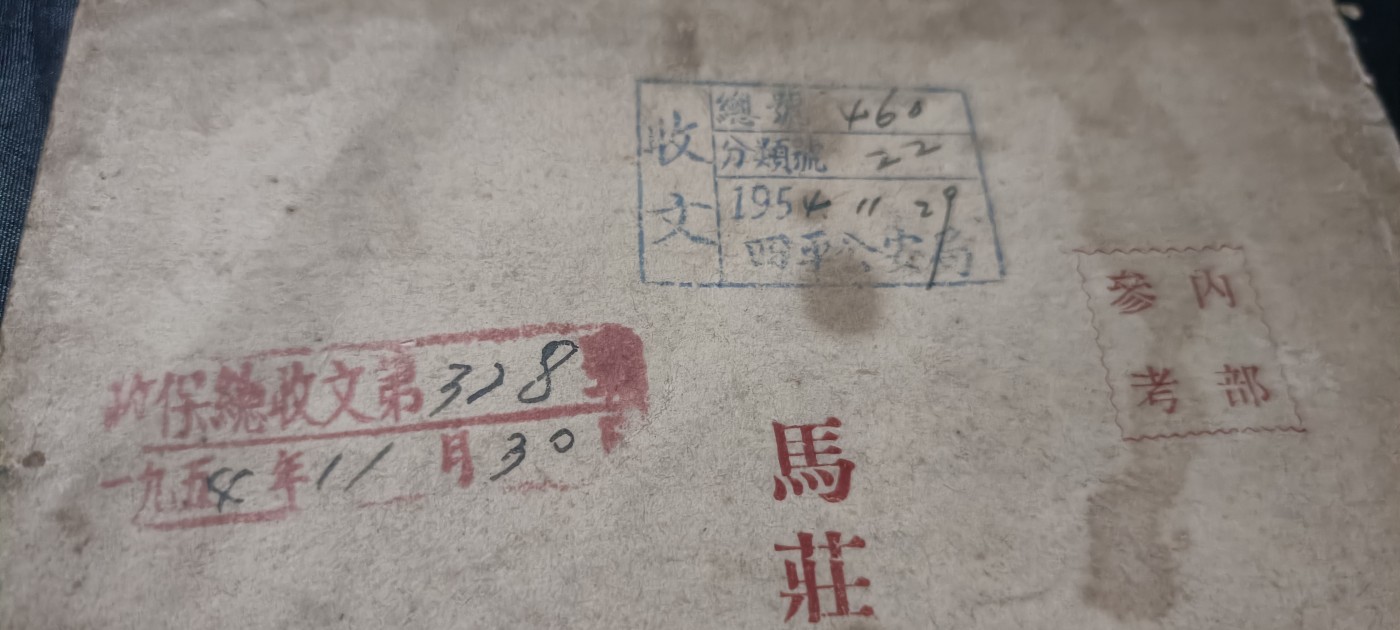 收文
總號 460
分類號 22
1954 11 29
四平公安局
內部
參考
政保總收文第328號
一九五4年11月30
馬莊